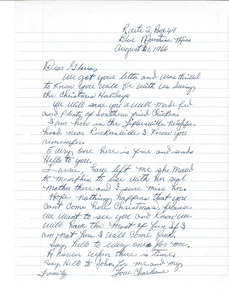 Route 2 Box 49
Blue Mountain Miss
August 21, 1966
Dear Gloria,
We got your letter and was thrilled
to know you will be with us during
the Christmas Holidays.
We will save you a well made bed
and Plenty of Southern fried Chicken
I am now in the
hood near I know you
remember.
Every one Here is fine and sends
Hello to you.
have left me she moved
to Memphis to live with her aged
mother there and I sure miss her.
Hope nothing happens that you
Can't Come Christmas,
we want to see you and know we
will have the Most of fun If I
am not Here I will Come back.
Say Hello to every one for me.
when there is time,
Say Hello to John for me and my
family
Love Charlene